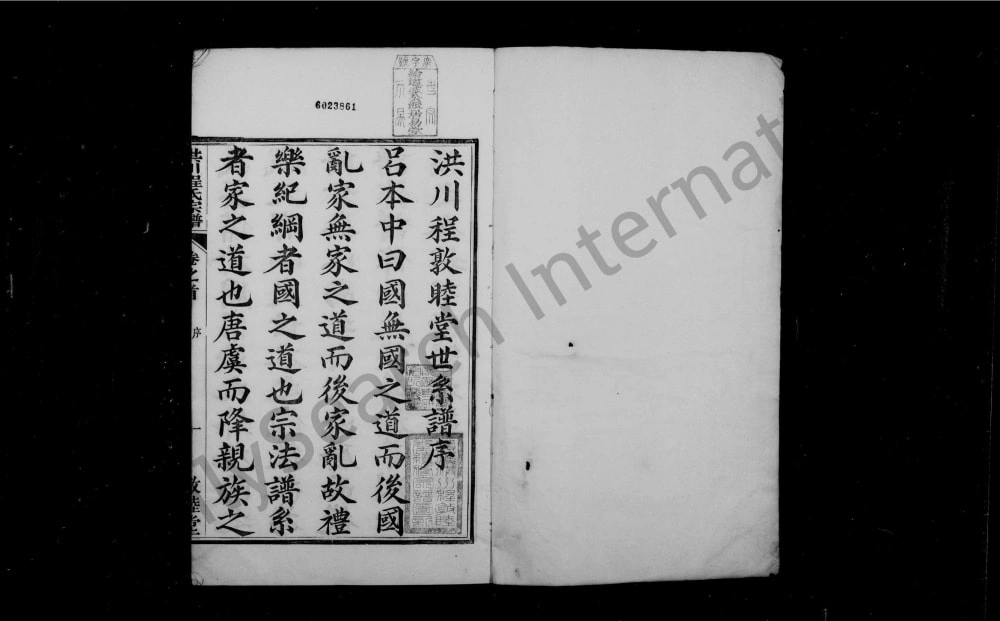 洪川程敦睦堂世系譜序
呂本中曰國無國之道而後國
亂家無家之道而後家亂故禮
樂紀綱者國之道也宗法譜系
者家之道也唐虞而降親族之
洪川程氏宗譜
卷之首
序
一
敦睦堂
6023861